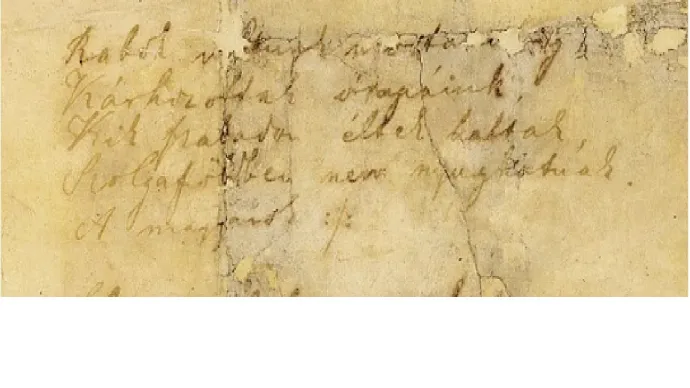 Rabok voltunk mostanáig
Kárhozottak ősapáink,
Kik szabadon éltek haltak,
Szolgaföldben nem nyughatnak.
A magyarok :/: